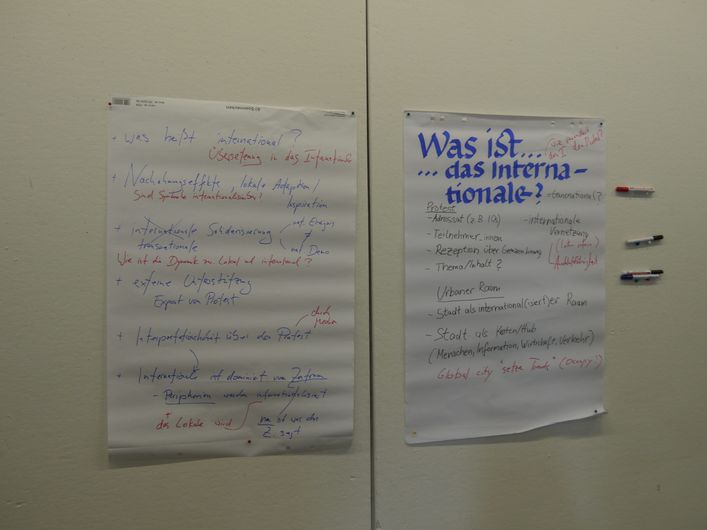 + was heißt international?
Übersetzung in das Internationale
+ Nachahmungseffekte, lokale Adaption/
Inspiration
Sind Symbole internationalisierbar?
+ Internationale Solidarisierung
transnationale
mit Demo
Wie ist die Dynamik zw. Lokal und international?
+ externe Unterstützung
Export von Protest
durch
+ Interpretationshoheit über den Protest
+ Internationale ist dominiert von Zentrum
- Peripherien werden internationalisiert
+ das Lokale wird
nur ist was das
Z. sagt
Was ist...
... das interna-
tionale-?
- transnational?
Protest
- Adressat (z.B. IOs)
- internationale
Vernetzung
- Teilnehmer_innen
- Rezeption über Grenzen hinweg
- Thema/Inhalt?
Urbaner Raum
- Stadt als international(isiert)er Raum
- Stadt als Knoten/Hub
(Menschen, Information, Wirtschaft, Verkehr)
Global city "sets Trends" (Occupy!)